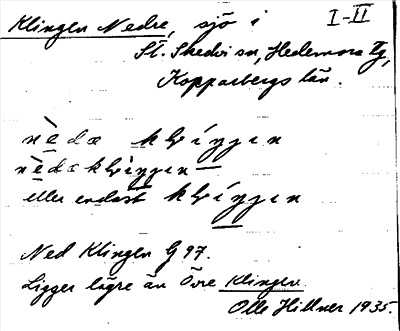 Klingen Nedre, sjö i I-II
St. Skedvi sn, Hedemora tg,
Kopparbergs län.
eller endast
Ned Klingen G 97.
Ligger lägre än Övre Klingen.
Olle Hillner 1935.